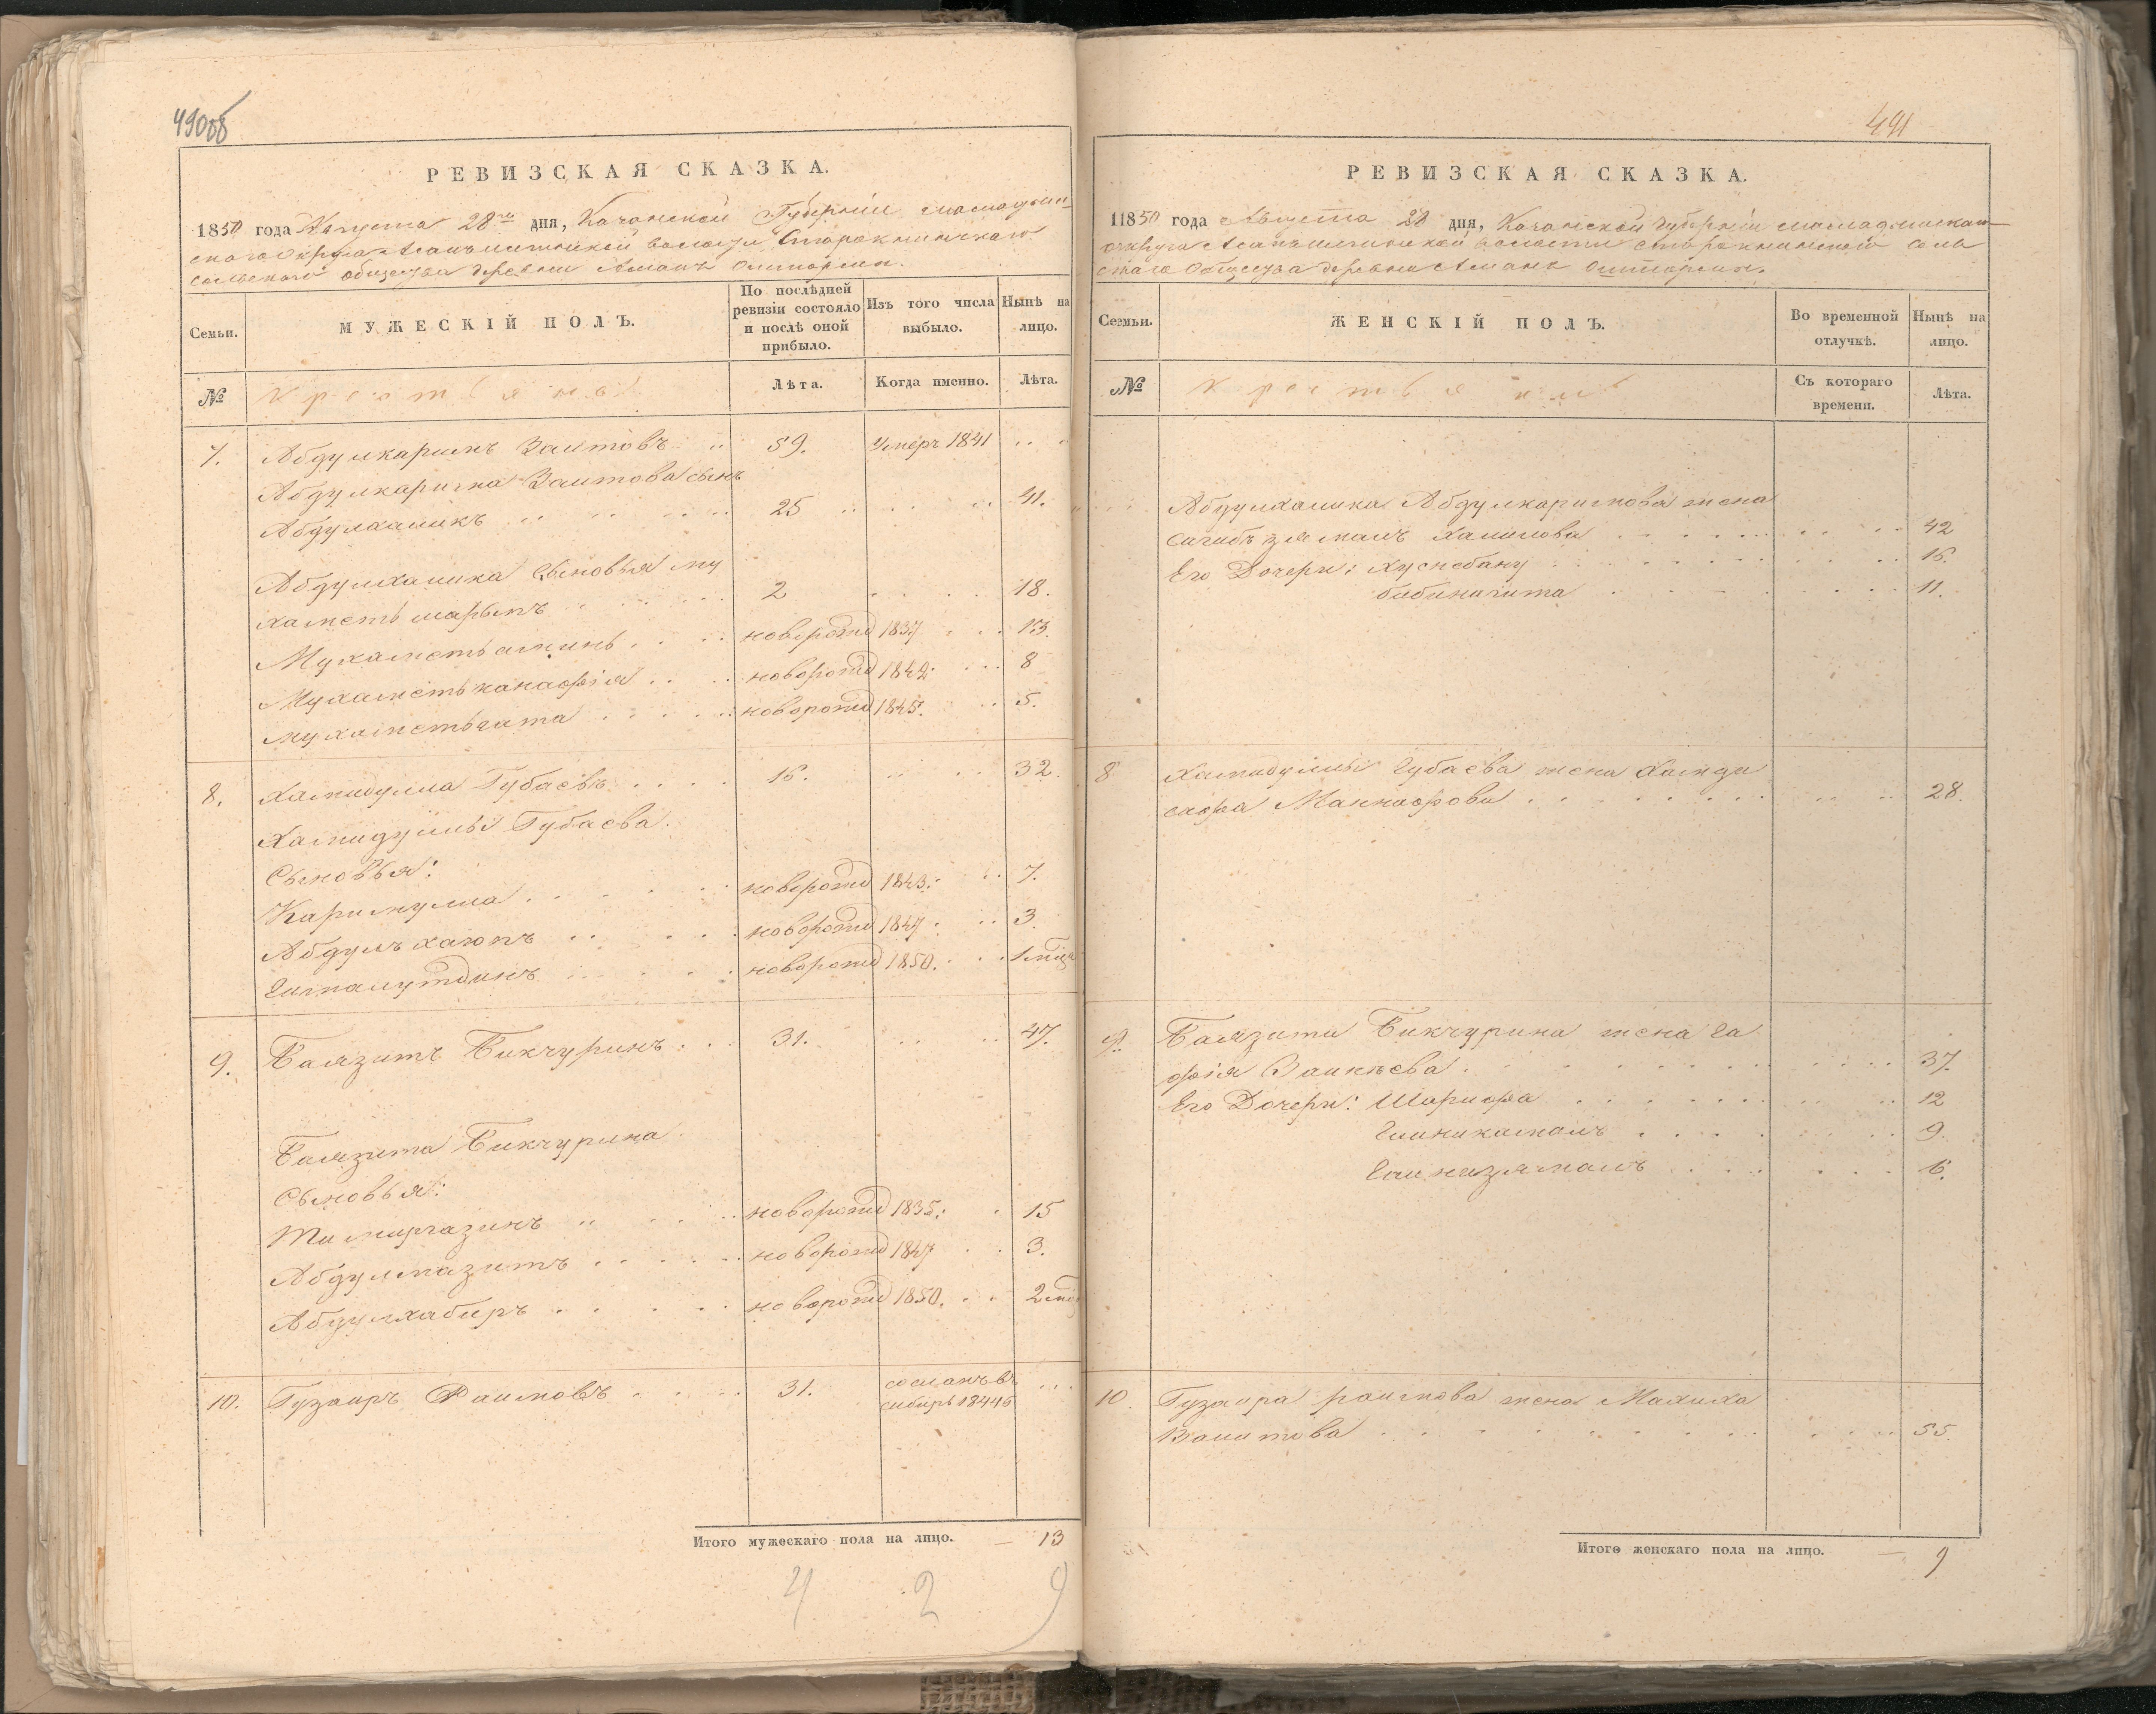 490об
РЕВИЗСКАЯ СКАЗКА.
1850 года Августа 28го дня, Казанской Губернии Мамадыш-
скаго Округа Волости Старокминскаго
сельскаго общества деревни Ошторма.
Семьи.
МУЖЕСКІЙ ПОЛЪ.
По послѣдней ревизіи состояло и послѣ оной прибыло.
Изъ того числа выбыло.
Нынѣ на лицо.
№
Крестьяне
Лѣта.
Когда именно.
Лѣта.
7. Абдулкаримъ Заитовъ 59. Умеръ 1841
Абдулкарима Заитова сынъ
Абдулхаликъ 25 41.
Абдулхалика сыновья Му
хаметьшарыпъ 2 18.
Мухаметьаминь новорожд 1837 13.
Мухаметьканафія новорожд 1842 8
Мухаметьгата новорожд 1845. 5.
8. Хамидулла Губаевъ 16. 32.
Хамидуллы Губаева
Сыновья:
Каримулла новорожд 1843. 7.
Абдулъхаюпъ новорожд 1847. 3.
новорожд 1850. 1 мца
9. Баязитъ Бикчуринъ 31. 47.
Баязита Бикчурина
Сыновья:
Тимиргазинъ новорожд 1835. 15
Абдулмазитъ новорожд 1847 3.
Абдулхабиръ новорожд 1850. 2 мц
10. Гузаиръ Раимовъ 31. сосланъ въ
сибирь 1844го
Итого мужескаго пола на лицо. — 13
4 2 9
491
РЕВИЗСКАЯ СКАЗКА.
11850 года Августа 28 дня, Казанской Губерніи Мамадышскаго
округа волости Старокминскаго сель
скаго Общества деревни Ошторма.
Семьи.
ЖЕНСКІЙ ПОЛЪ.
Во временной отлучкѣ.
Нынѣ на лицо.
№
Крестьяне
Съ котораго времени.
Лѣта.
Абдулхалика Абдулкаримова жена
Сагибъзямалъ Халилова 42
Его Дочери: Хуснебану 16.
Бибинагима 11.
8 Хамидуллы Губаева жена Хамди
сафа Маннафова 28.
9. Баязита Бикчурина жена Га
фія Заикѣева 37.
Его Дочери: Шарифа 12
Гиникамалъ 9.
Гайнизямалъ 6.
10. Гузаира раимова жена Малиха
Валитова 55.
Итого женскаго пола на лицо. — 9